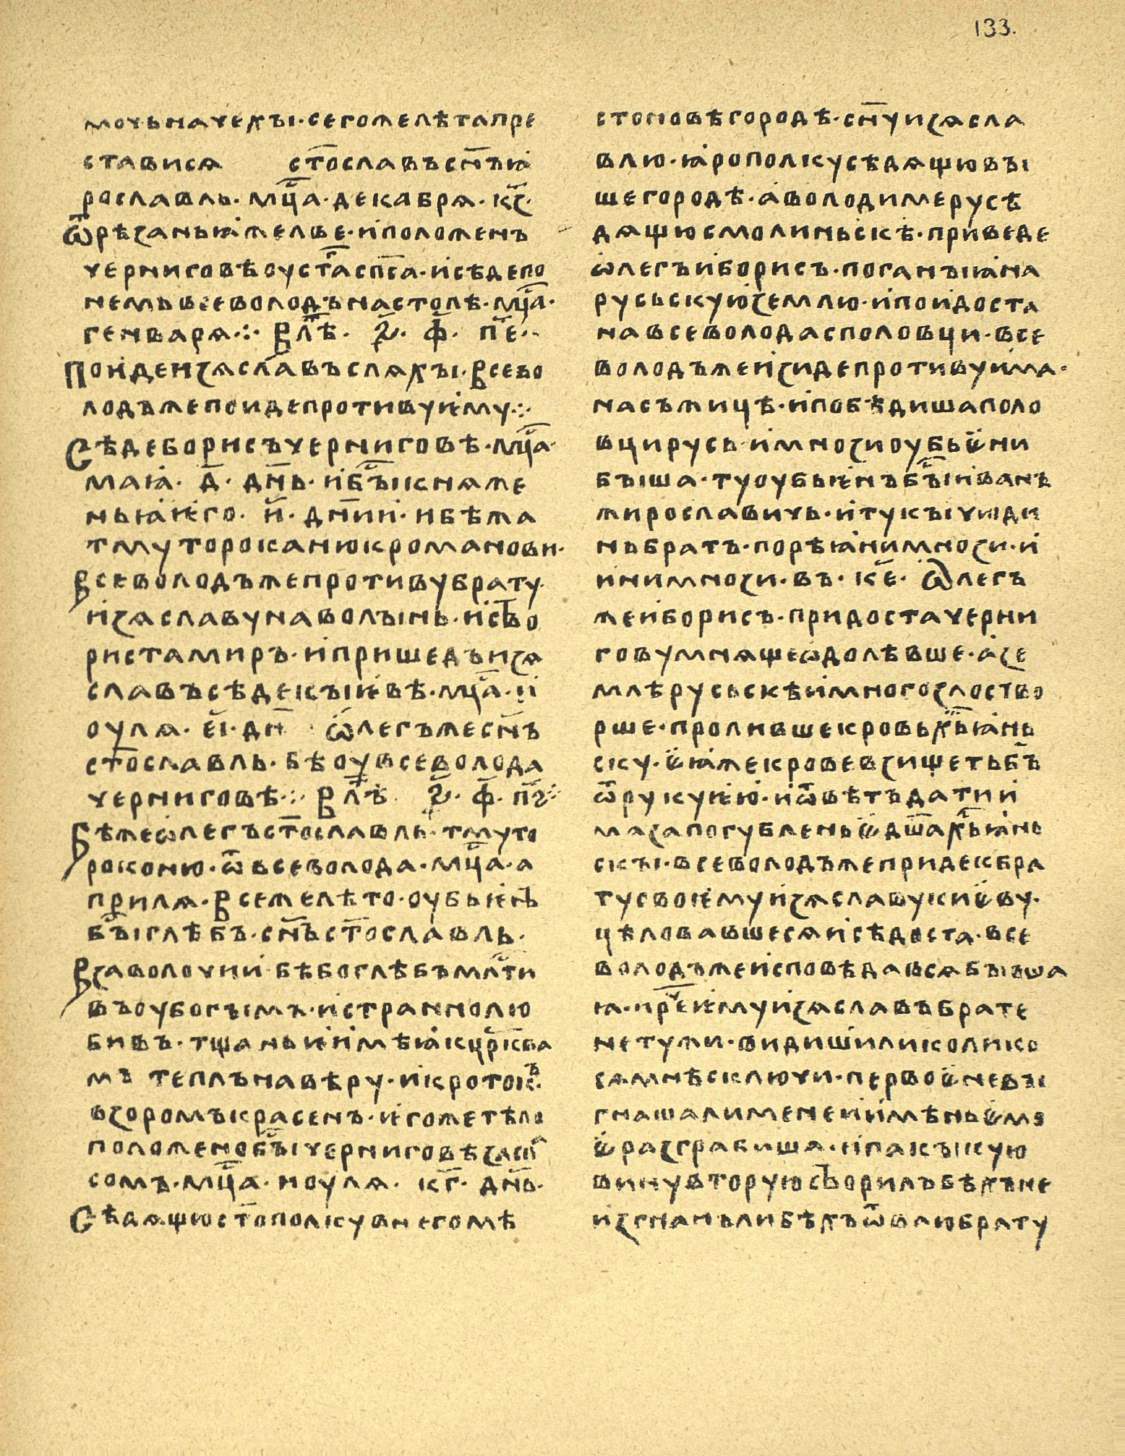 133.
мочьначехꙑ·сегожелѣтапре
стависѧ ст҃ославъсн҃ъꙗ
рославль·мц҃а·декабрѧ·кз҃·
ѿрѣзаньꙗжелве·иположенъ
черниговѣоуст҃аспс҃а·исѣдепо
немьвсеволодънастолѣ·мц҃а·
генварѧ·:· Влѣ҃· ҂ѕ҃· ф҃· п҃е·
Поидеизѧславъслѧхꙑ·Всево
лодъжепоидепротивуѥму·:·
Сѣдеборисъчерниговѣ·мц҃а·
маꙗ·д҃·дн҃ь·ибꙑ҃кнѧже
ньꙗѥго·и҃·дн҃ии·ибѣжа
тмутороканюкроманови·
Всеволодъжепротивубрату·
изѧславунаволꙑнь·исъво
ристамиръ·ипришедъизѧ
славъсѣдекꙑѥвѣ·мц҃а·и
оулѧ·еі҃·дн҃ ѡлегъжесн҃ъ
ст҃ославль·бѣоувсеволода
черниговѣ·:·Влѣ҃ ҂ѕ҃·ф҃·пѕ҃·:·
Бѣжеѡлегъст҃ославль·тмуто
роконю·ѿвсеволода·мц҃а·а
прилѧ·Всемелѣто·оубьѥнъ
бꙑ҃глѣбъ·сн҃ъст҃ославль·
Взаволочии·бѣбоглѣбъмлс҃ти
въоубогꙑмъ·истраннолю
бивъ·тщаньѥимѣꙗкцр҃ква
мъ теплънавѣру·икротокъ·
взоромъкрасенъ·ѥгожетѣло
положенобꙑ҃черниговѣзасп҃
сомъ·мц҃а·иоулѧ·кг҃·дн҃ь·
Сѣдѧщюст҃ополкувнегомѣ
стоновѣгородѣ·сн҃уизѧсла
влю·ꙗрополкусѣдѧщювꙑ
шегородѣ·аволодимерусѣ
дѧщюсмолиньскѣ·приведе
ѡлегъиборисъ·поганꙑꙗна
русьскуюземлю·ипоидоста
навсеволодасполовци·все
володъжеизидепротивуима·
насъжицѣ·ипобѣдишаполо
вцирусь·имнозиоубьѥни
бꙑша·туоубьѥнъбꙑ҃иванъ
жирославичь·итукꙑчюди
нь братъ·порѣꙗнимнози·и
инимнози·въ·ке҃· Ѡлегъ
жеиборисъ·придостачерни
говумнѧщеѡдолѣвше·азе
млѣрусьскѣимногозлоство
рше·проливше кровьхъ҃ꙗнь
ску·ѥꙗжекровевзищетьб҃ъ
ѿрукуѥю·иѿвѣтъдатии
мазапогубленыѥдш҃ахъ҃ꙗнь
скꙑ·всеволодъжепридекбра
тусвоѥмуизѧславукиѥву·
цѣловавшесѧисѣдоста·все
володъжеисповѣдавсѧбꙑвша
ꙗ·ире҃ѥмуизѧславъбрате
нетужи·видишиликолико
сѧмнѣсключи·первоѥневꙑ
гнашалименеиимѣньѥмо
ѥразграбиша·ипакꙑкую
винувторуюсъворилъбѣхъне
изгнанълибѣхъѿваюбрату